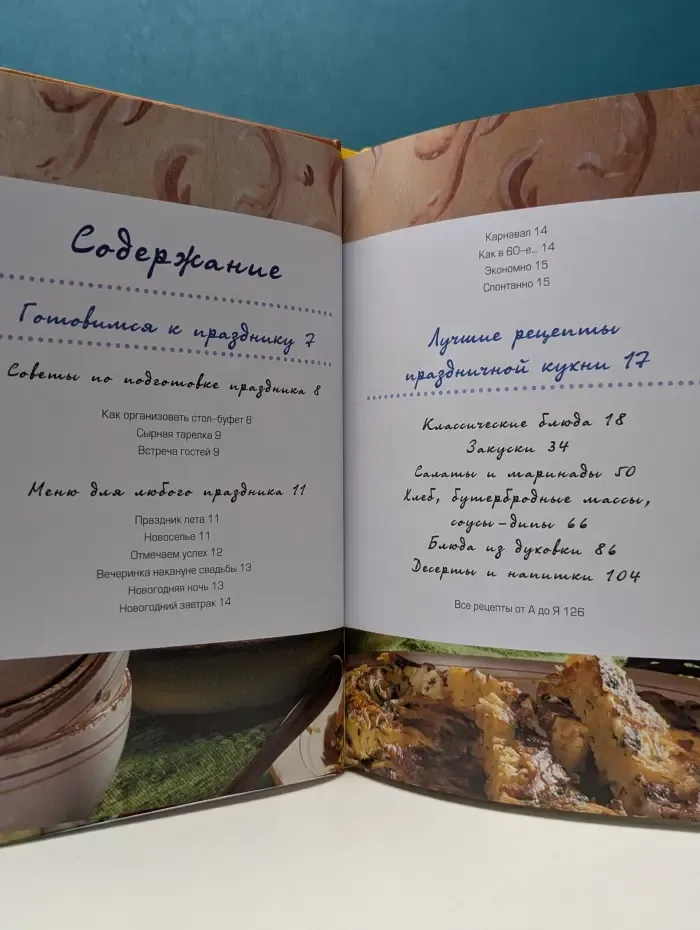 Содержание
Готовимся к празднику 7
Советы по подготовке праздника 8
Как организовать стол-буфет 8
Сырная тарелка 9
Встреча гостей 9
Меню для любого праздника 11
Праздник лета 11
Новоселье 11
Отмечаем успех 12
Вечеринка накануне свадьбы 13
Новогодняя ночь 13
Новогодний завтрак 14
Карнавал 14
Как в 60-е... 14
Экономно 15
Спонтанно 15
Лучшие рецепты
праздничной кухни 17
Классические блюда 18
Закуски 34
Салаты и маринады 50
Хлеб, бутербродные массы,
соусы-дипы 66
Блюда из духовки 86
Десерты и напитки 104
Все рецепты от А до Я 126